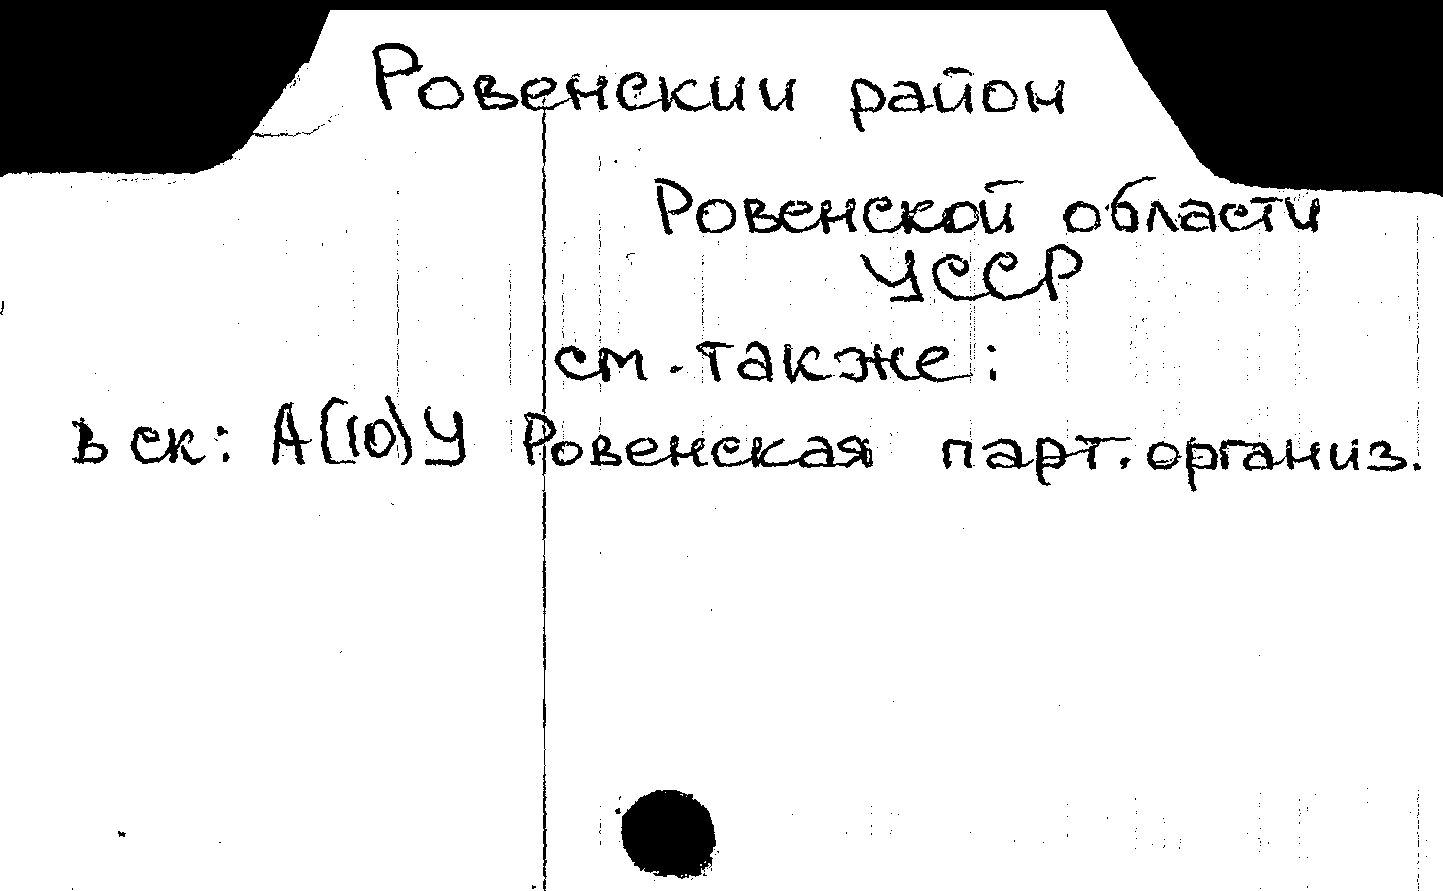 Ровенскии район
Ровенской области
УССР
см. также:
в ск: А(10)У Ровенская парт. организ.